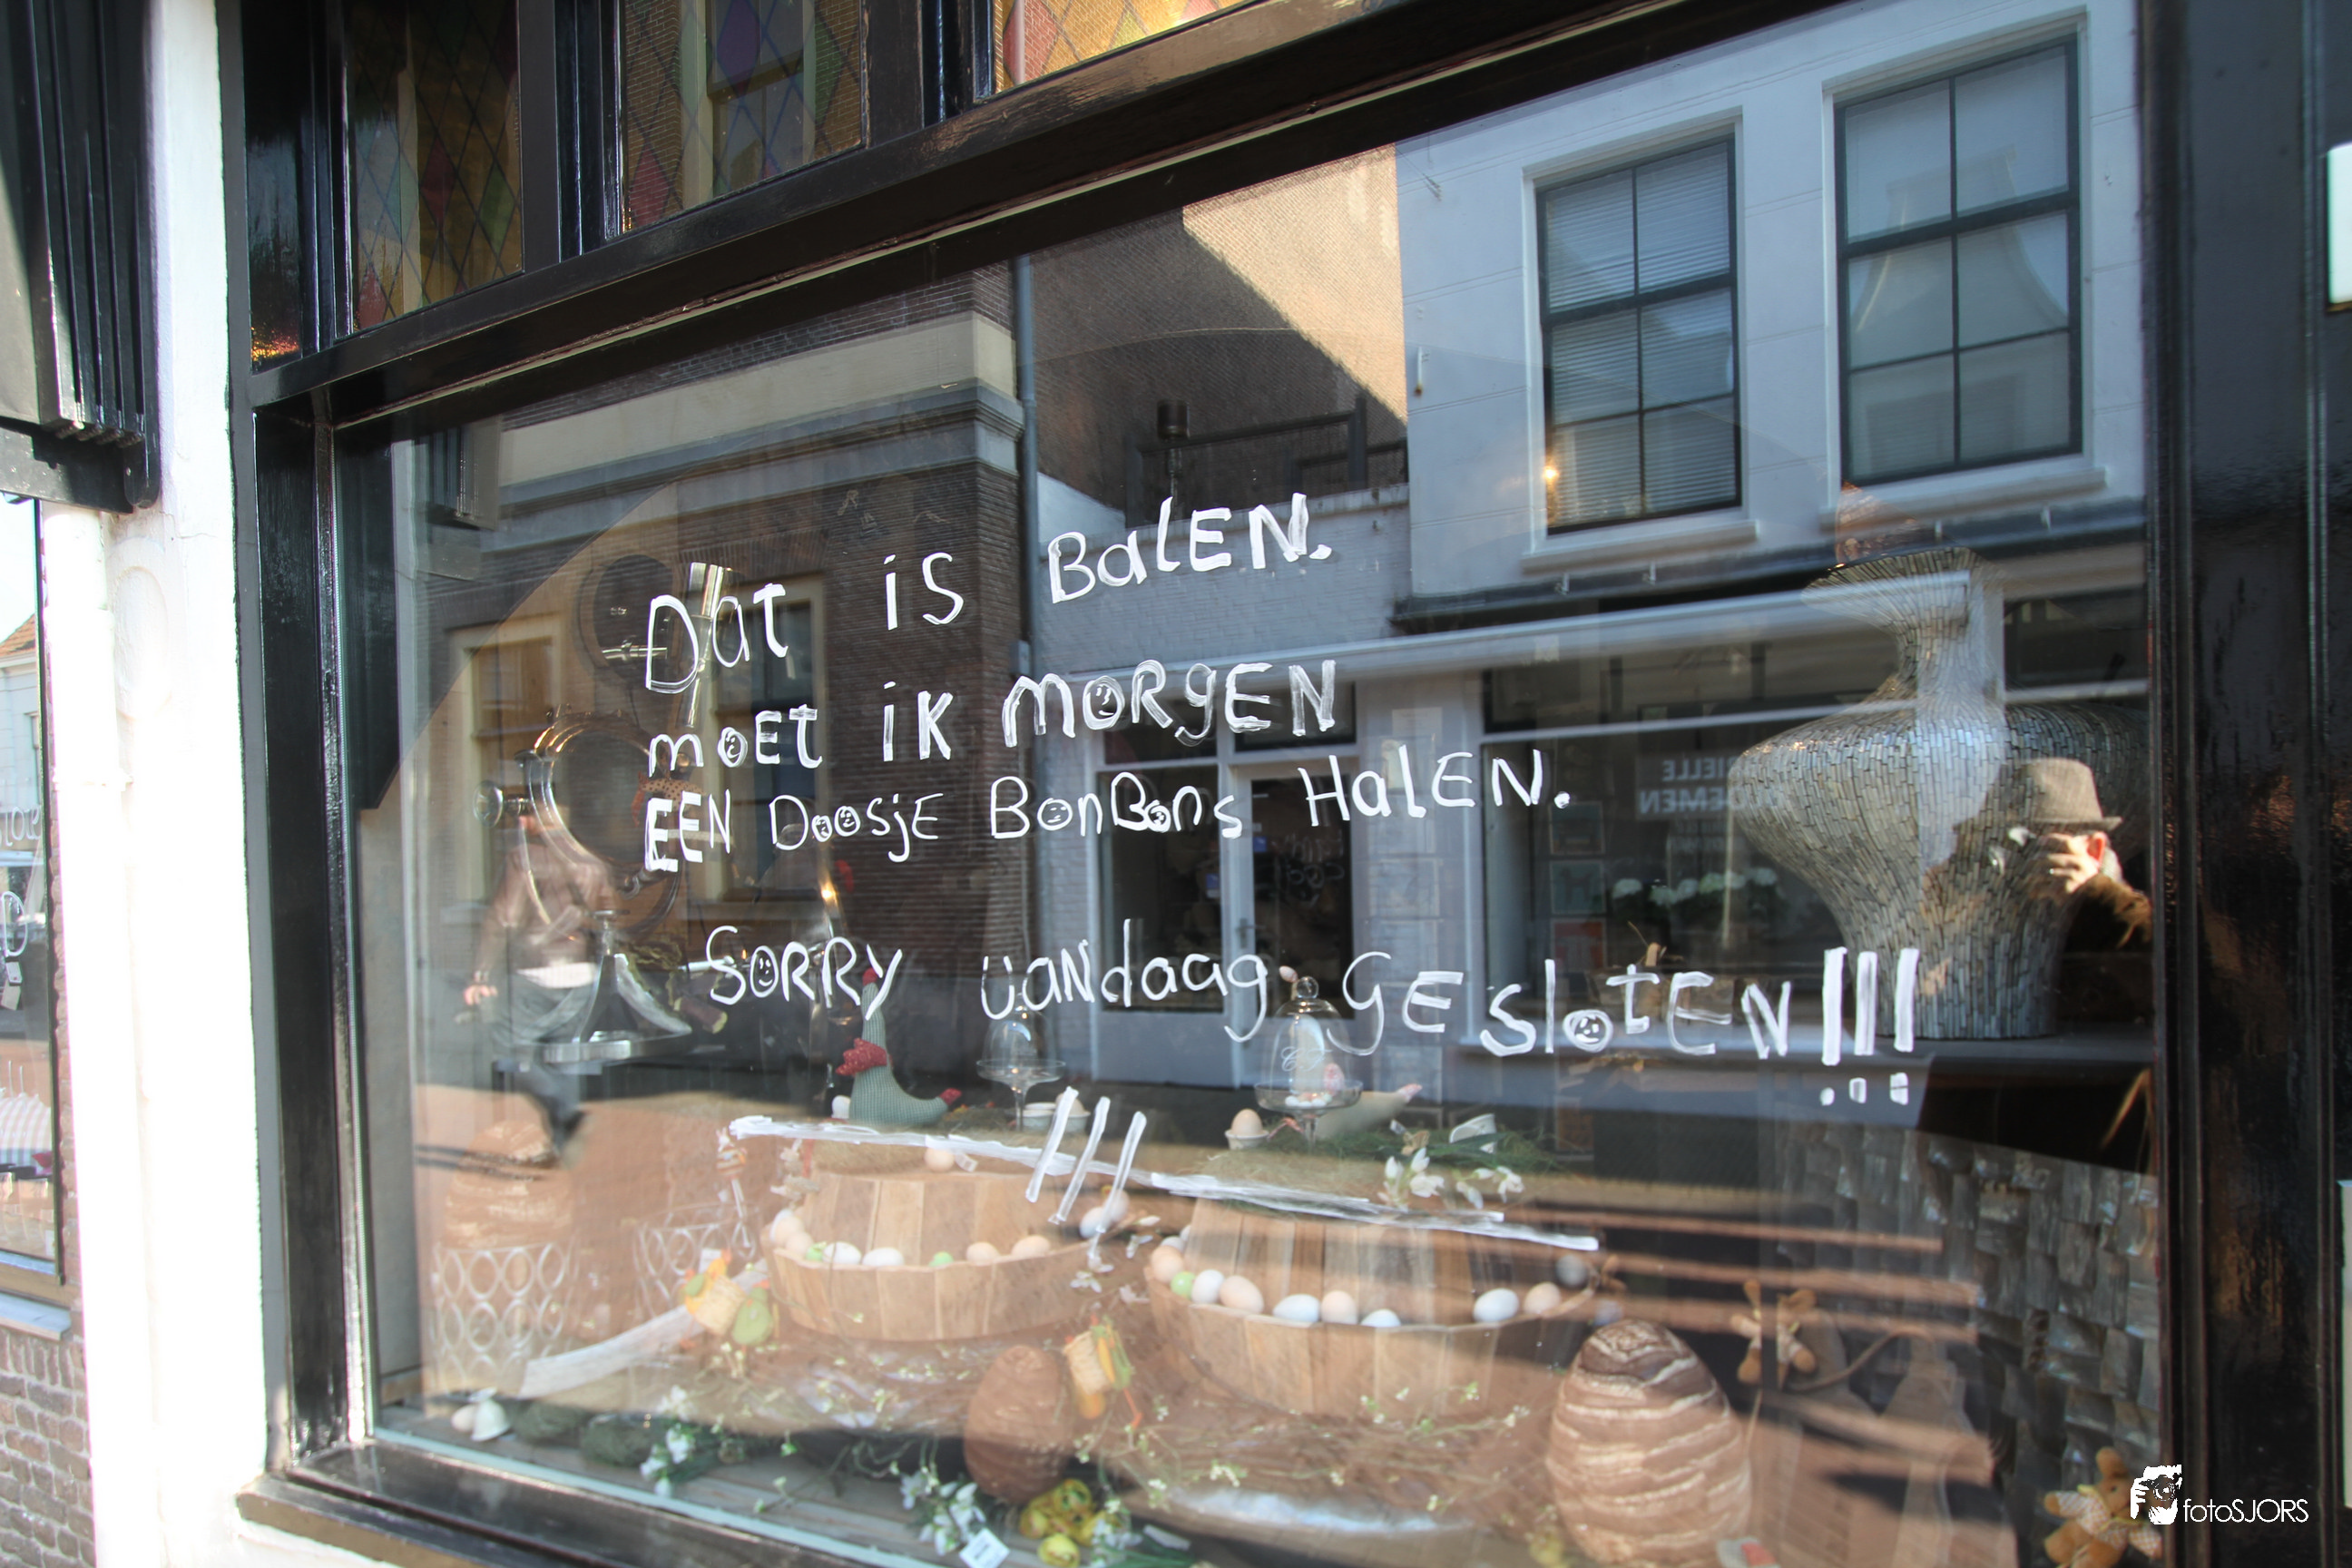 Dat is BalEN.
moEt ik moRgEN
EEN DoosjE BonBons HalEN.
SoRRy vaNdaag gEslotEN!!!
RIELLE
OEMEN
fotoSJORS